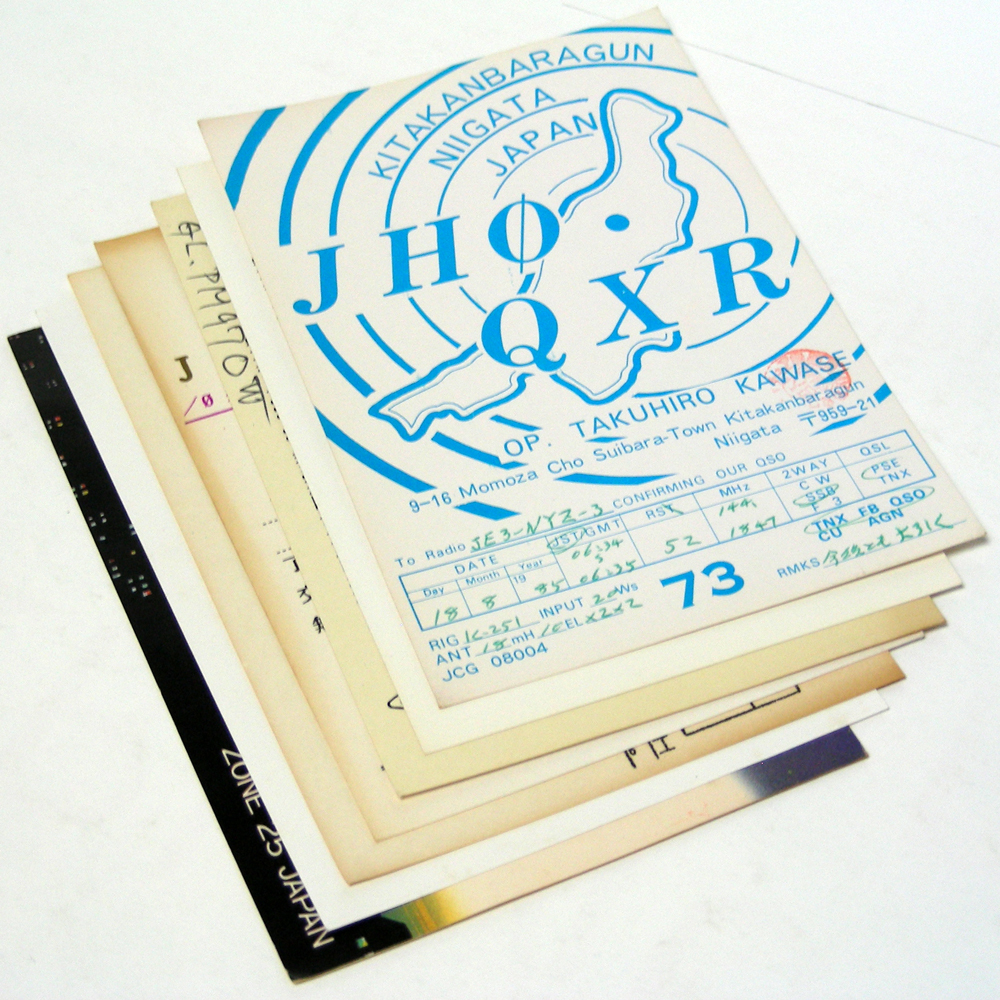 KITAKANBARAGUN
NIIGATA
JAPAN
JHØ
QXR
OP. TAKUHIRO KAWASE
9-16 Momoza Cho Suibara-Town Kitakanbaragun
Niigata 〒959-21
To Radio JE3-NYZ-3 CONFIRMING OUR QSO
DATE JST/GMT RST MHz 2WAY QSL
Day Month Year
18 8 1985 06:34 06:35 52 144 CW SSB F3 PSE TNX
TNX FB QSO
CU AGN
RIG IC-251 INPUT 20Ws 73 RMKS
ANT 18mH 10ELx2x2
JCG 08004
GL. PM97OW
J
/Ø
ZONE 25 JAPAN